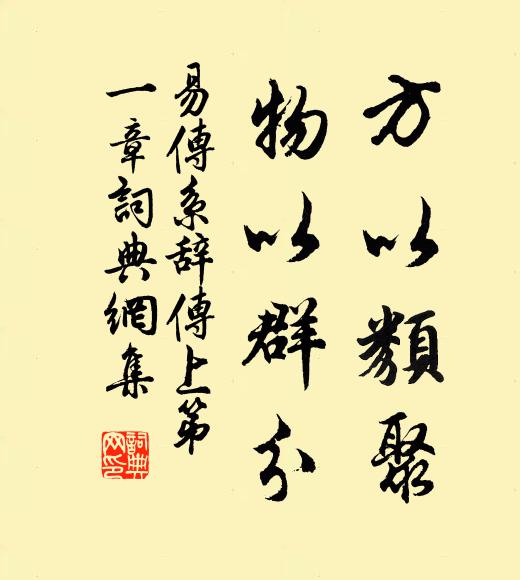 方以類聚
物以群分
易傳系辞傳上第
一章詞典網集
詞典
网印